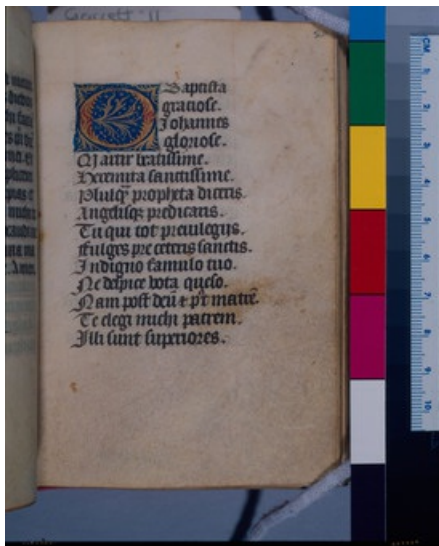 Garrett 11
O Baptista
graciose.
Johannes
gloriose.
Martir beatissime.
Heremita sanctissime.
Plusq̃ propheta diceris.
Angelusq̃ predicaris.
Tu qui tot preuilegijs.
Fulges pre ceteris sanctis.
Indigno famulo tuo.
Ne despice vota queso.
Nam post deũ t p̃r matrẽ.
Te elegi michi patrem.
Illi sunt superiores.
CM
1
2
3
4
5
6
7
8
9
10